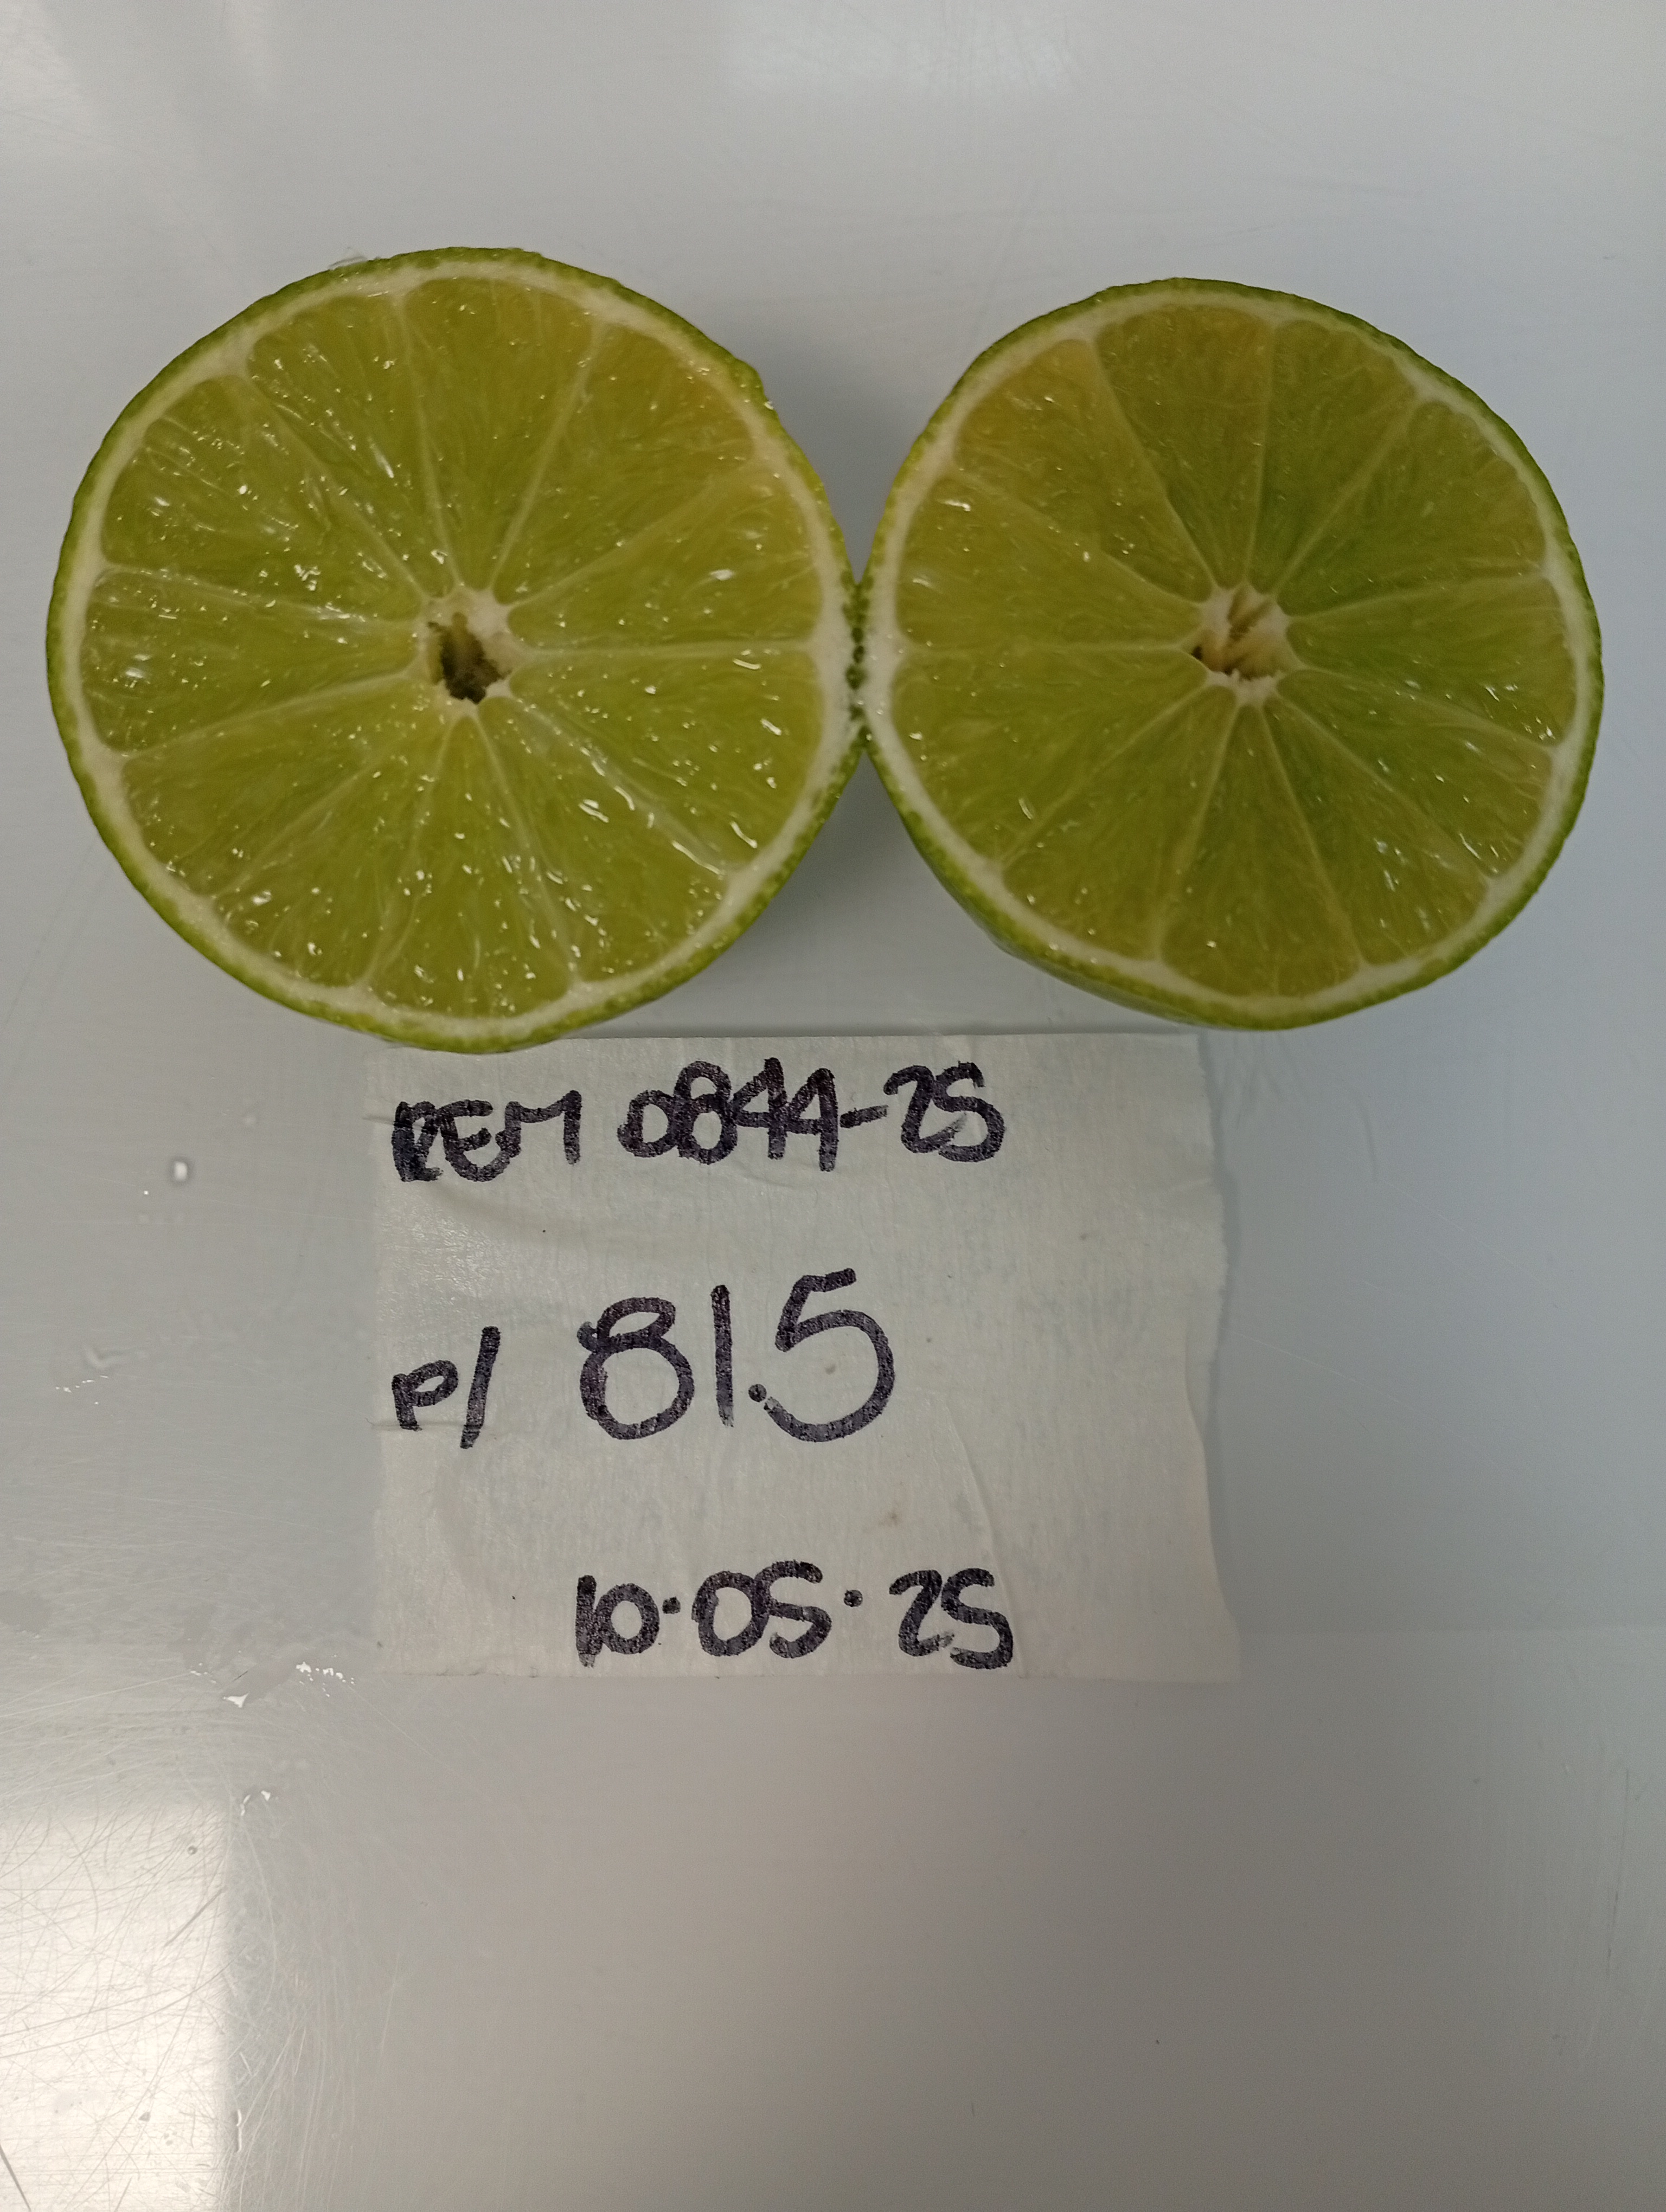 REM 0844-25
P/ 81.5
10·05·25